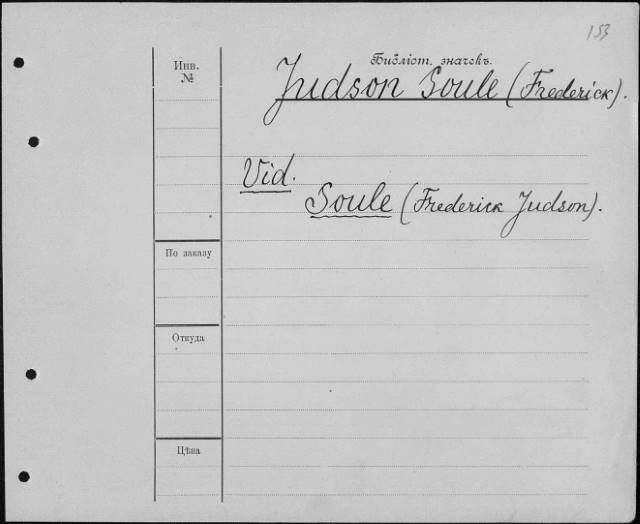 153
Библіот. значекъ.
Инв.
№
Judson Soule (Frederick).
Vid.
Soule (Frederick Judson).
По заказу
Откуда
Цѣна